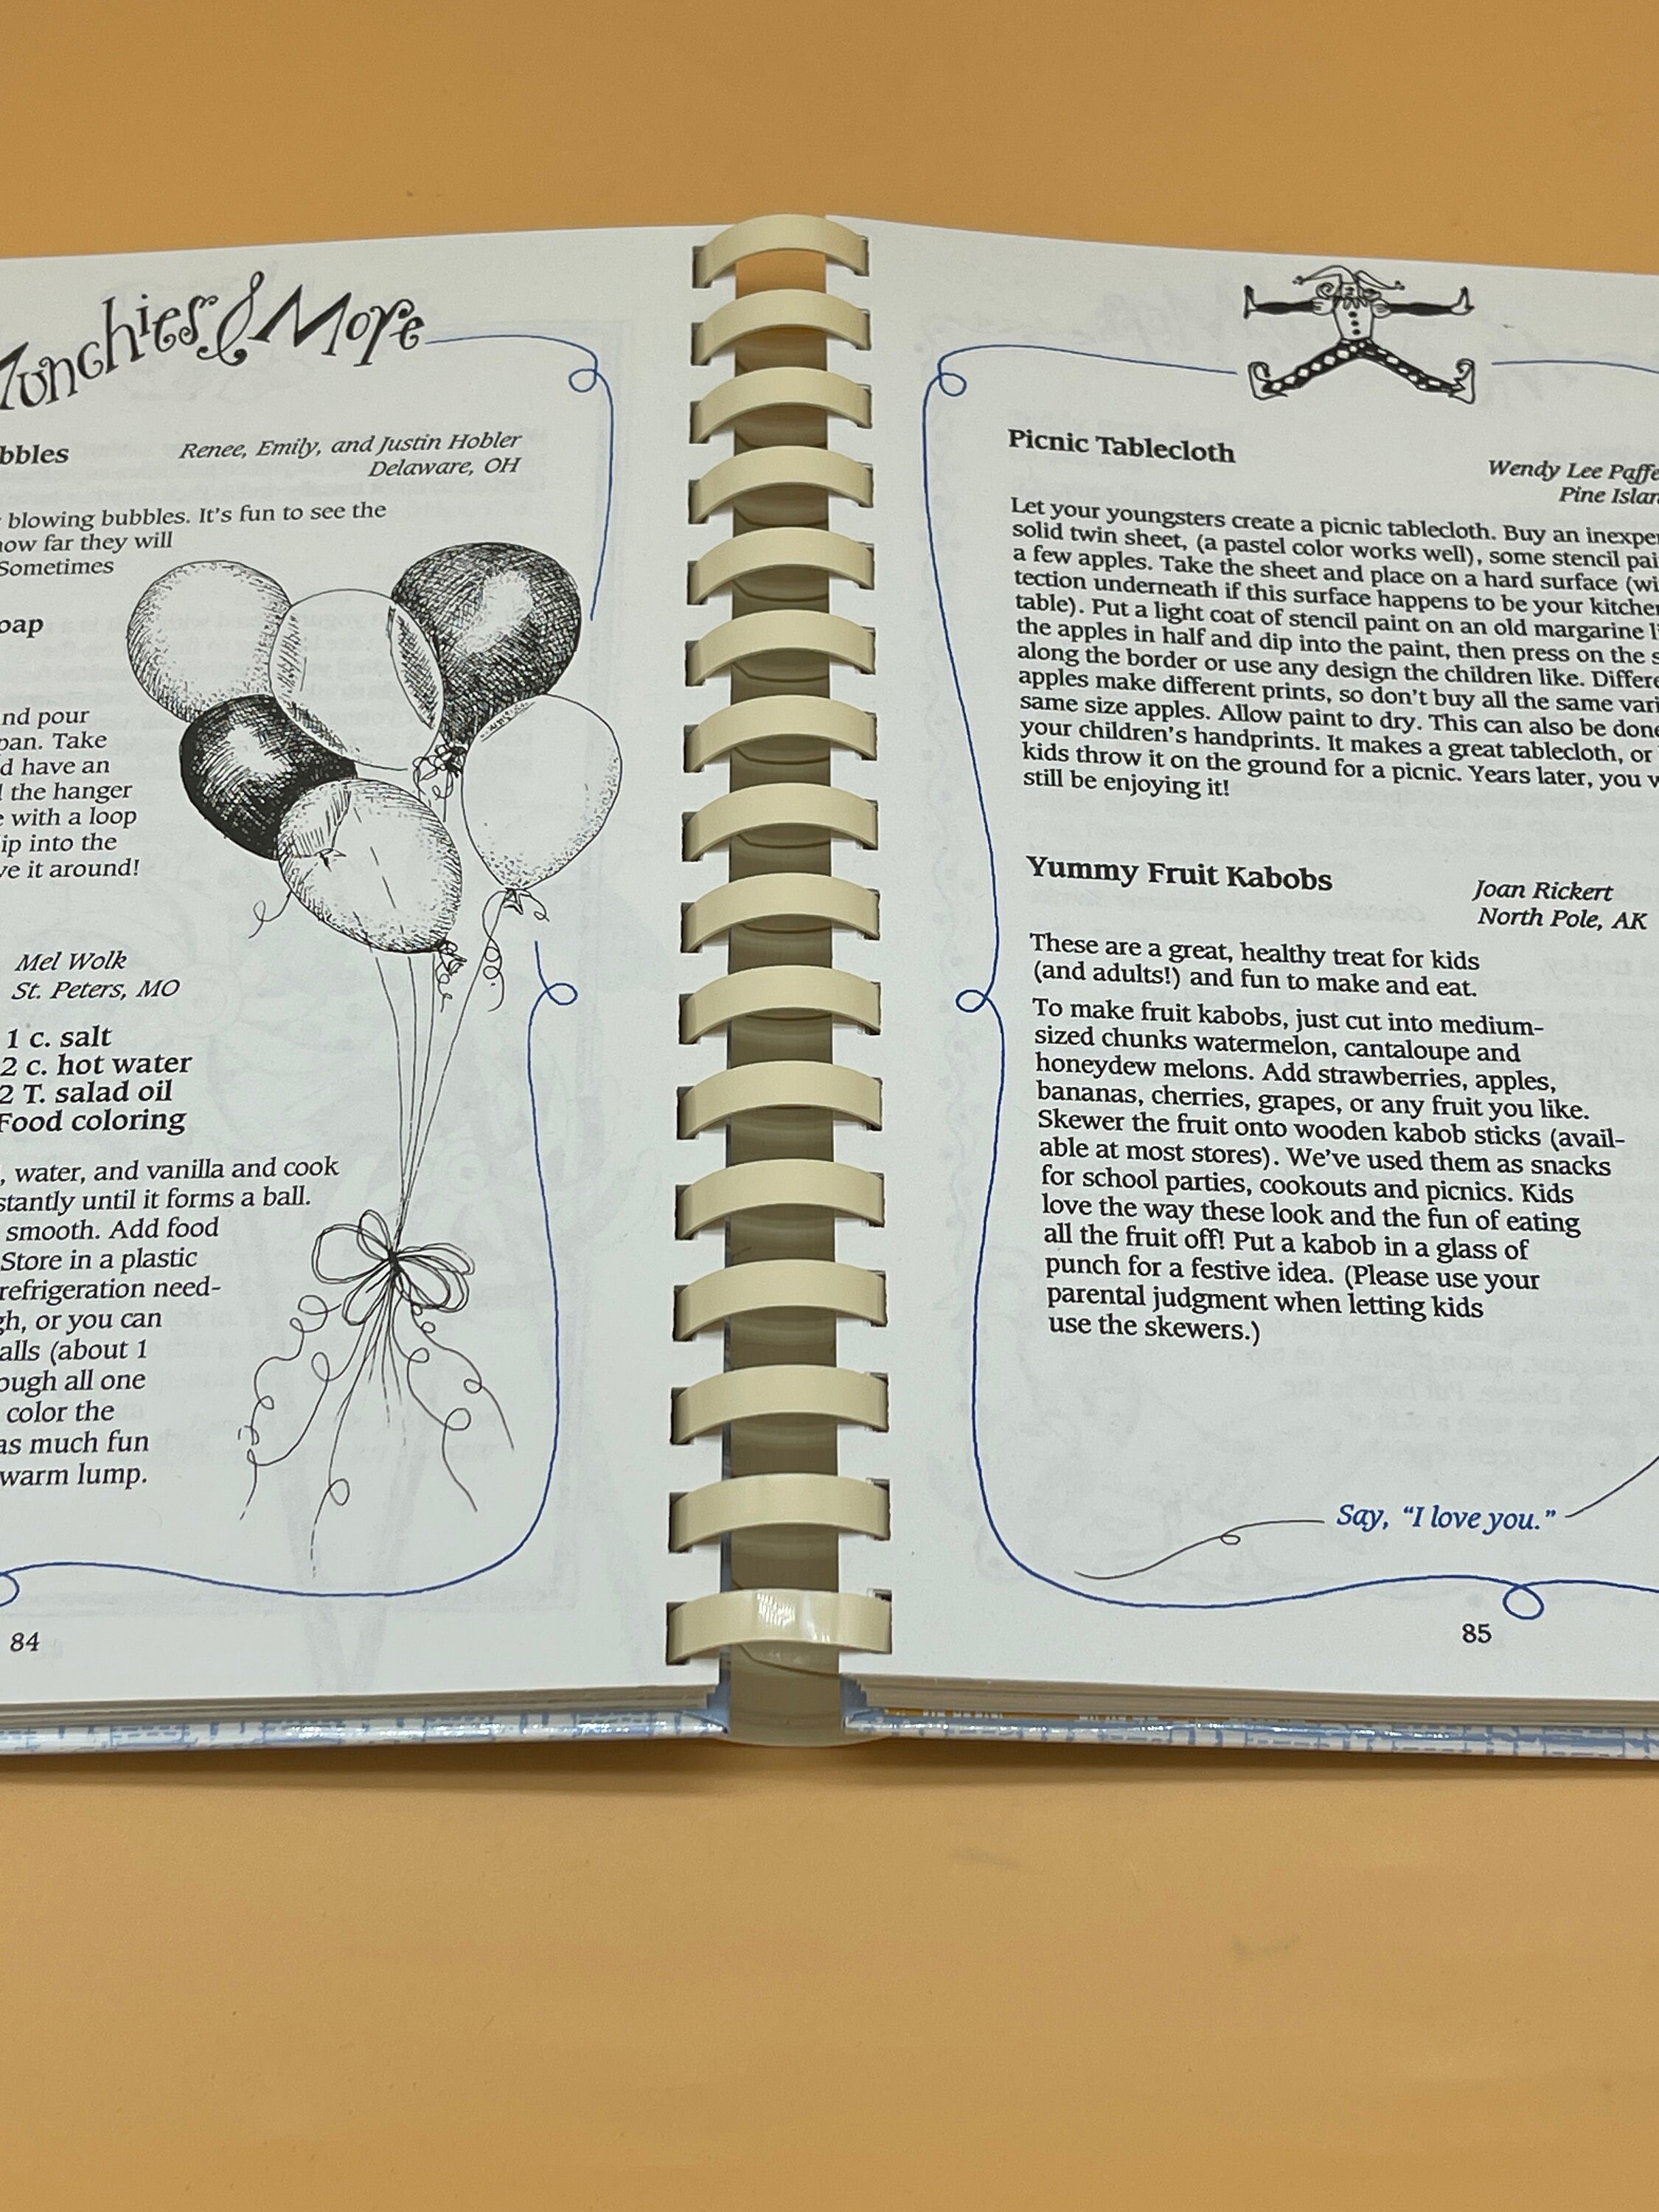 Munchies & More
Renee, Emily, and Justin Hobler
Delaware, OH
blowing bubbles. It's fun to see the
far they will
Sometimes
pour
pan. Take
have an
the hanger
with a loop
into the
it around!
Mel Wolk
St. Peters, MO
1 c. salt
2 c. hot water
2 T. salad oil
Food coloring
, water, and vanilla and cook
until it forms a ball.
smooth. Add food
Store in a plastic
refrigeration need-
or you can
(about 1
all one
color the
as much fun
warm lump.
84
Picnic Tablecloth
Wendy Lee
Pine
Let your youngsters create a picnic tablecloth. Buy an
solid twin sheet, (a pastel color works well), some stencil
a few apples. Take the sheet and place on a hard surface
tection underneath if this surface happens to be your
table). Put a light coat of stencil paint on an old margarine
the apples in half and dip into the paint, then press on the
along the border or use any design the children like.
apples make different prints, so don't buy all the same
same size apples. Allow paint to dry. This can also be
your children's handprints. It makes a great tablecloth, or
kids throw it on the ground for a picnic. Years later, you
still be enjoying it!
Yummy Fruit Kabobs
Joan Rickert
North Pole, AK
These are a great, healthy treat for kids
(and adults!) and fun to make and eat.
To make fruit kabobs, just cut into medium-
sized chunks watermelon, cantaloupe and
honeydew melons. Add strawberries, apples,
bananas, cherries, grapes, or any fruit you like.
Skewer the fruit onto wooden kabob sticks (avail-
able at most stores). We've used them as snacks
for school parties, cookouts and picnics. Kids
love the way these look and the fun of eating
all the fruit off! Put a kabob in a glass of
punch for a festive idea. (Please use your
parental judgment when letting kids
use the skewers.)
Say, "I love you."
85